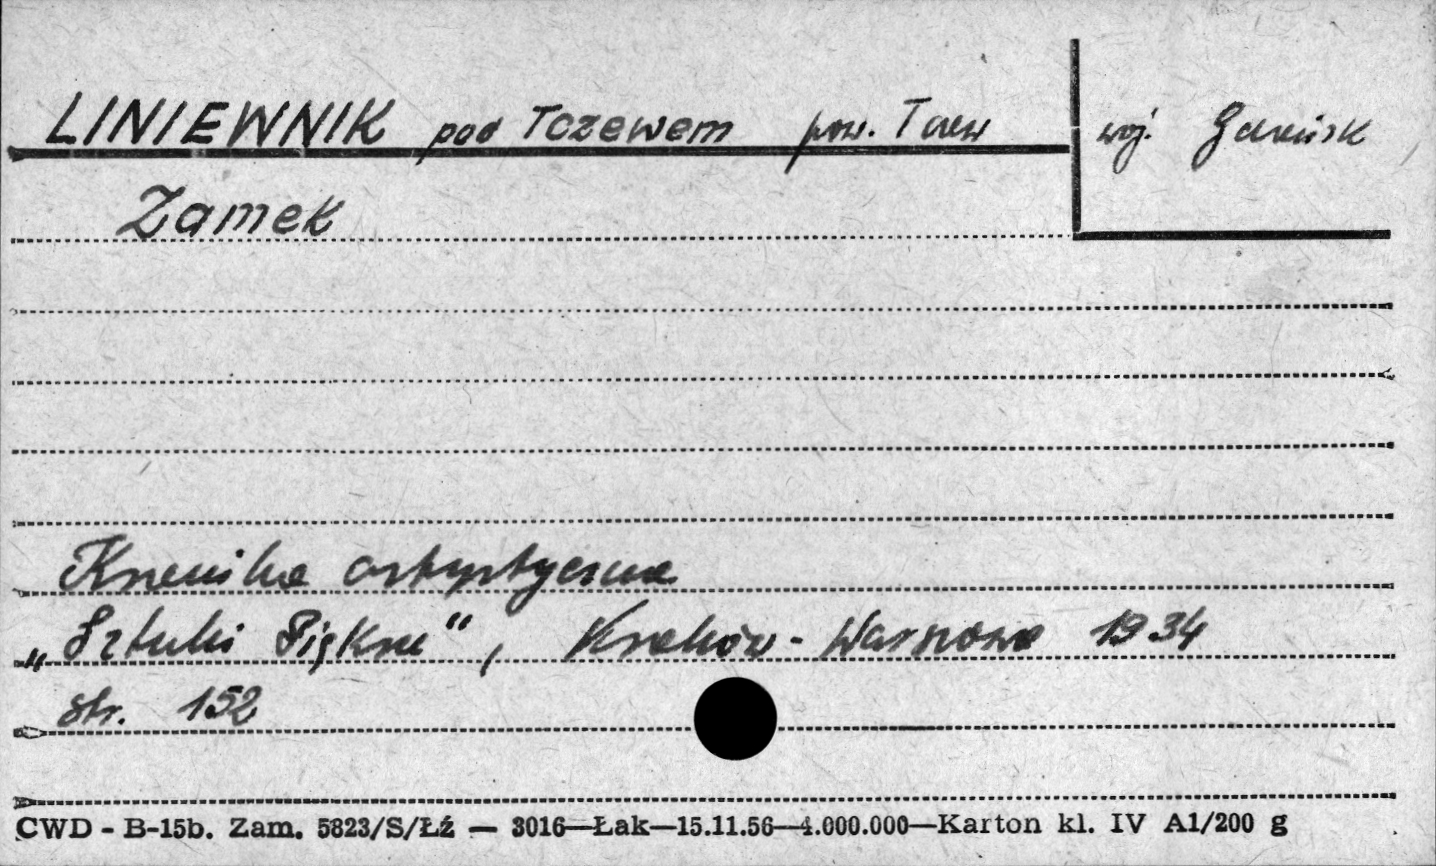 LINIEWNIK pod Tczewem pow. Tczew woj. Gdańsk
Zamek
Kronika artystyczna
„Sztuki Piękne", Kraków-Warszawa 1934
str. 152
CWD - B-15b. Zam. 5823/S/Łź — 3016—Łak—15.11.56—4.000.000—Karton kl. IV A1/200 g